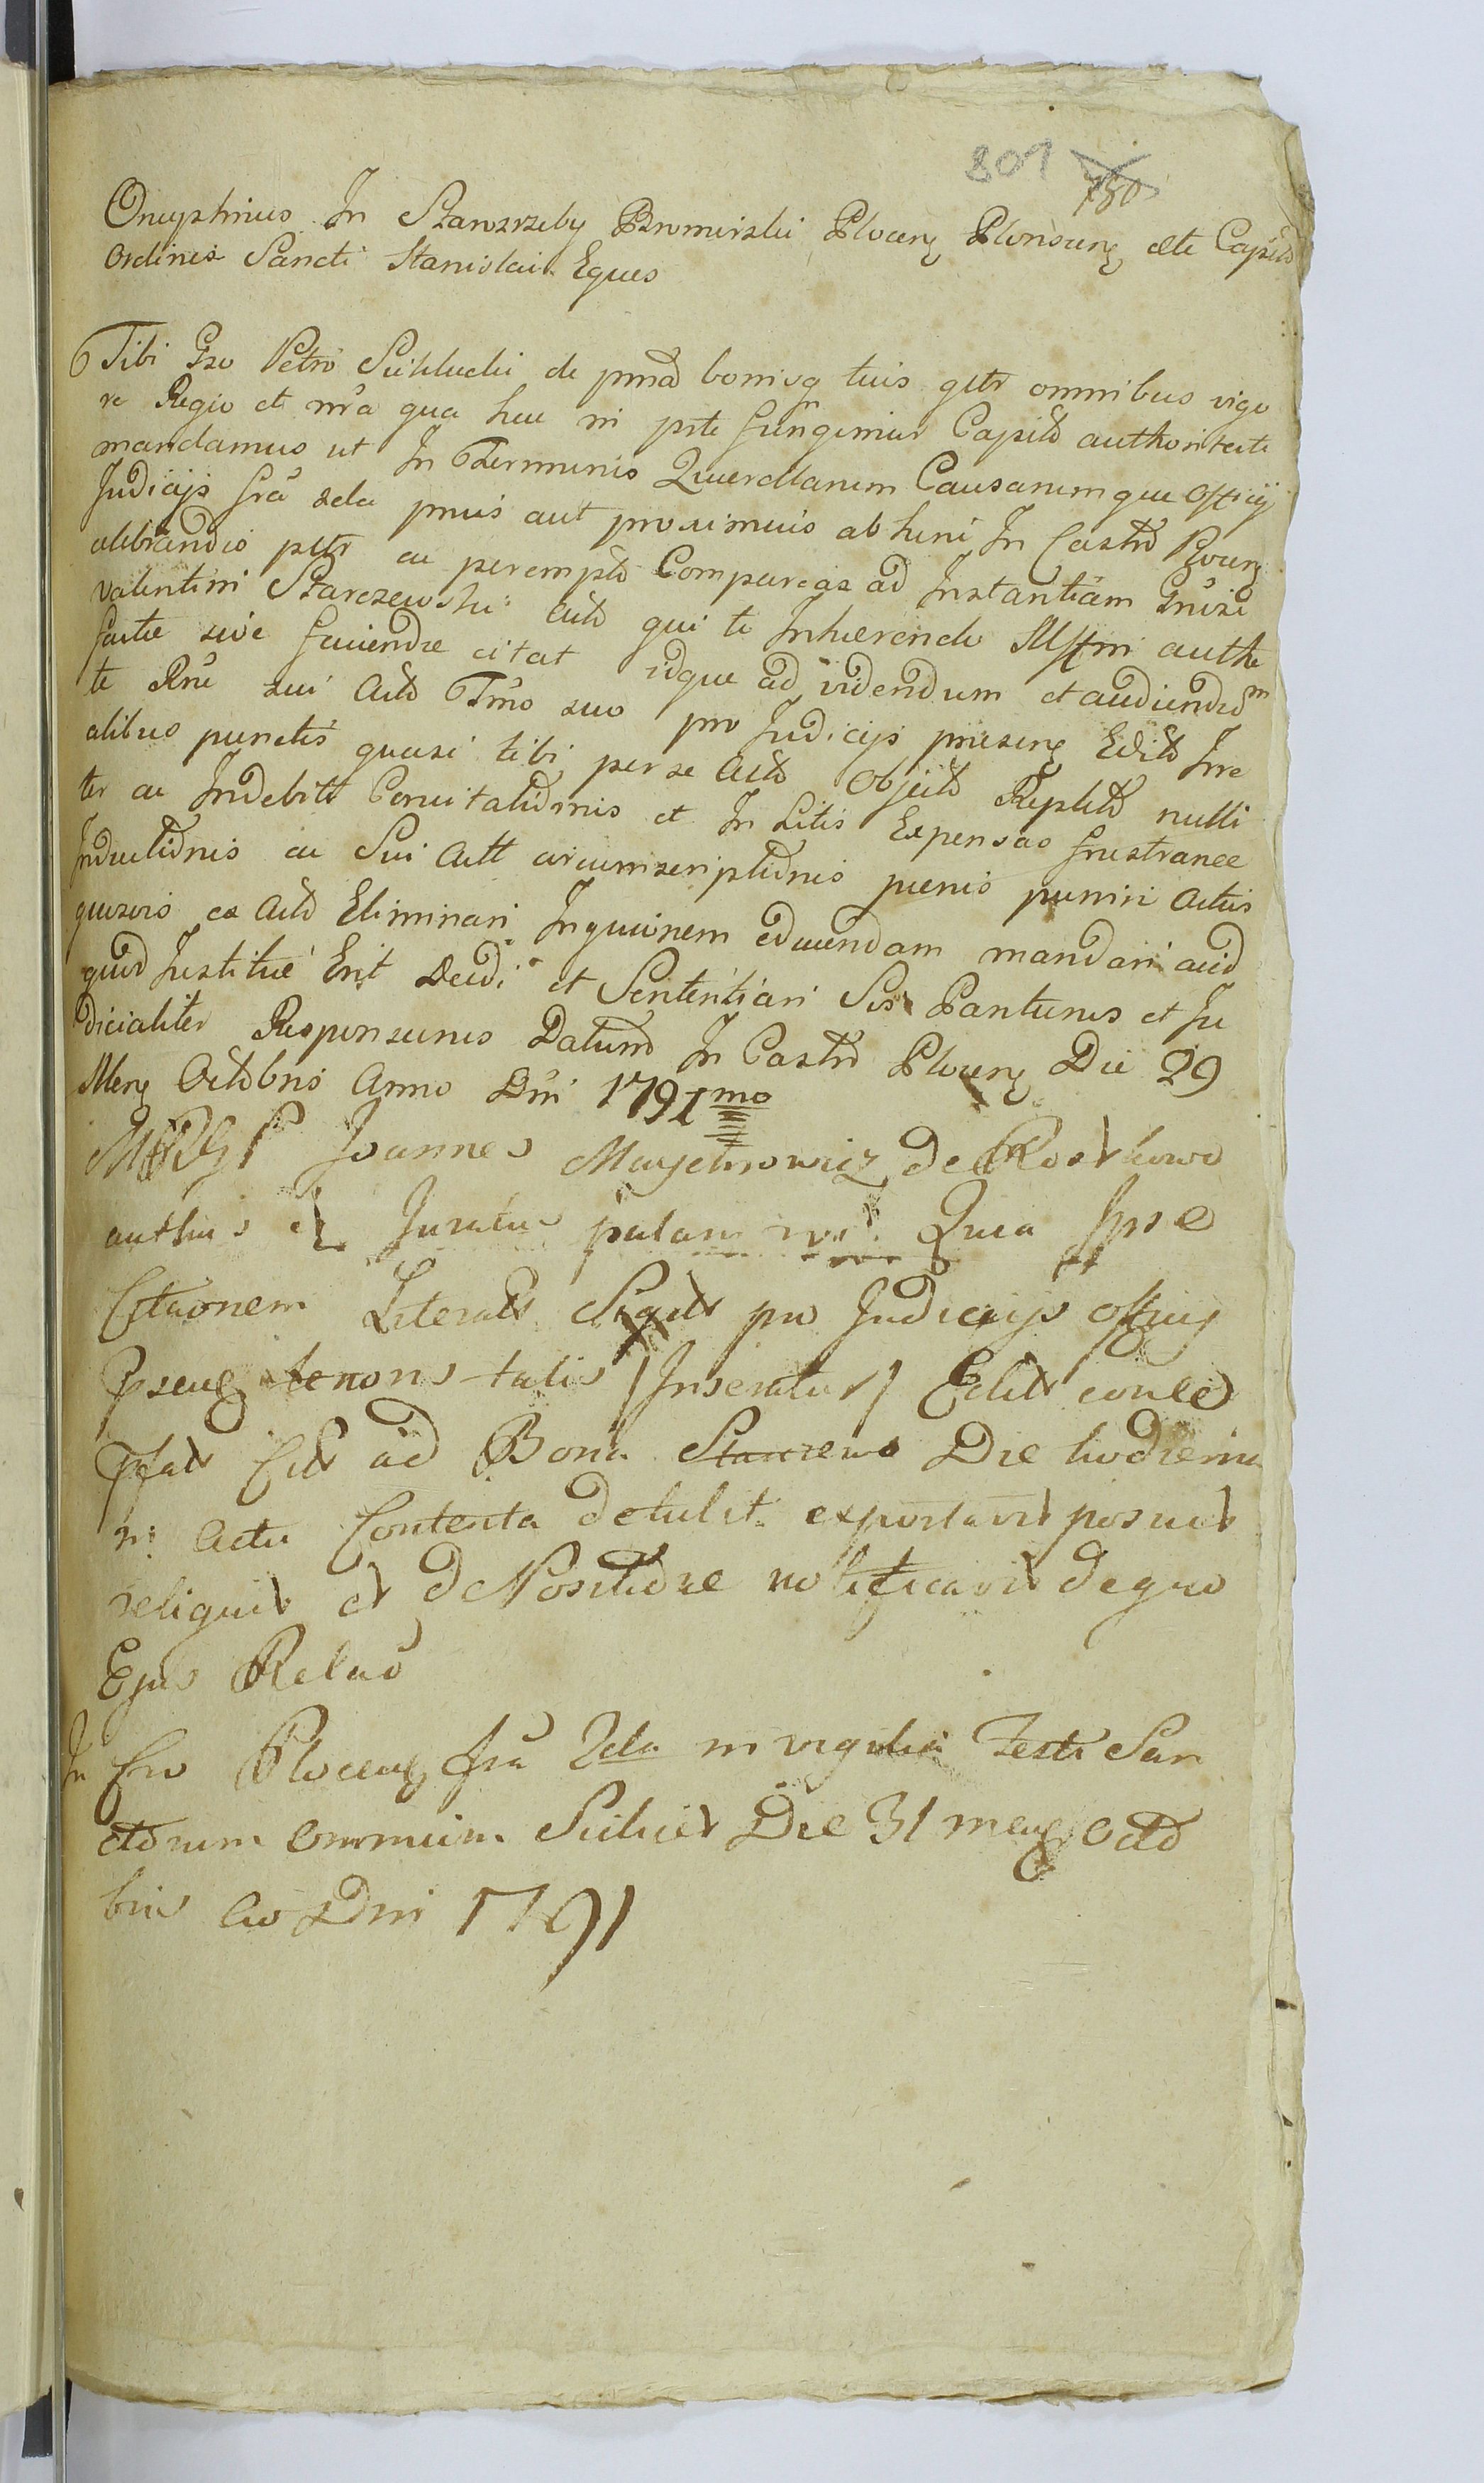 801 780
Onuphrius In Starozreby Bromirski Plocen Plonscen etc Capits
Ordinis Sancti Stanislai Eques
Tibi Gso Petro Suskluchi de psnad bonisq tuis gltr omnibus vigo
re Regio et nrâ qua hac in prte fungimur Capitli authoritate
mandamus ut In Terminis Querellarum Causarumque Officij
Judicijs frâ 2da prius aut proximius ab hinc In Castro Plocen
celebrandis pltr ac perempto Compareas ad Instantiam Gnosi
Valentini Starczewski Acto qui te Inhaerendo Msstm authe
factae sive faciendae citat idque ad videndum et audiendum
te Rne sui Acto Tmo suo pro Judicijs praesen Edito Irre
alibus punctis quasi tibi per se Acto Objecto Repletd nulli
ter ac Indebitt Convitatidnis et In Litis Expensas frustranee
Inductidnis ac Sui Actt circumscriptidnis paenis puniri Actus
quosvis ex Acto Eliminari Inqucionem educendam mandari aliud
quid Justitiae Erit Decidi et Sententiari Sis Pariturus et Ju
dicialiter Responsurus Datum In Castro Plocen Die 29
Men Octobris Anno Dni 1791mo
Joannes de Rostkowo
authus et Juratus palam Quia Ipse
Cttaonem Literals pro Judicijs Officij
Pseng tenoris talis /Inseratur/ Edits
Cits ad Bona Starczewo Die hodierna
Actu Contenta detulit exportavit posuit
reliquit et de Positidne notificavit de quo
Ejus Relao
In Cro Plocen fra 2da in vigilia Festi San
ctorum Omnium Scilicet Die 31 men Octo
bris Ao Dni 1791